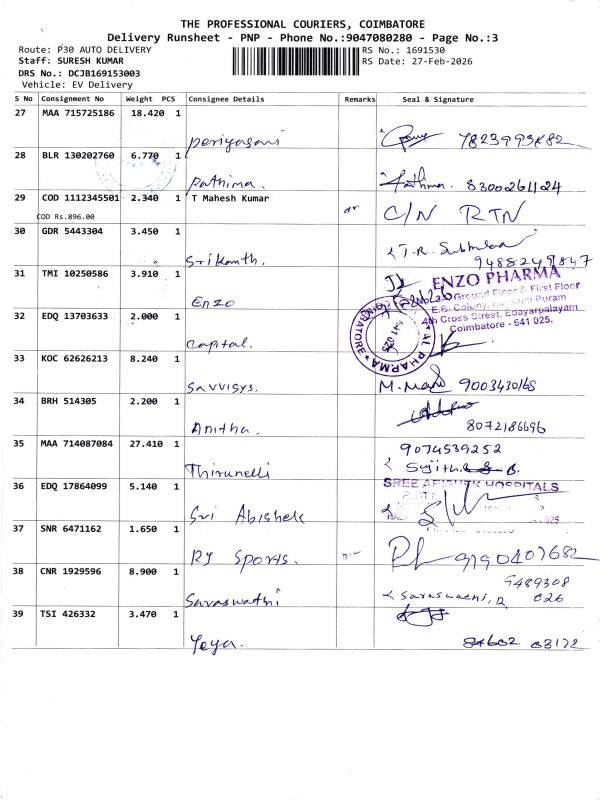 THE PROFESSIONAL COURIERS, COIMBATORE
Delivery Runsheet - PNP - Phone No.:9047080280 - Page No.:3
Route: P30 AUTO DELIVERY
RS No.: 1691530
Staff: SURESH KUMAR
RS Date: 27-Feb-2026
DRS No.: DCJB169153003
Vehicle: EV Delivery
S No Consignment No Weight PCS Consignee Details Remarks Seal & Signature
27 MAA 715725186 18.420 1 periyasami
28 BLR 130202760 6.770 1 Pathima. Fathima. 8300261124
29 COD 1112345501 2.340 1 T Mahesh Kumar C/N RTN
COD Rs.896.00
30 GDR 5443304 3.450 1 Srikanth. 9488249847
31 TMI 10250586 3.910 1 Enzo
ENZO PHARMA
Ground Floor & First Floor
E.B. Colony, Puram
4th Cross Street, Edayarpalayam
Coimbatore - 641 025.
32 EDQ 13703633 2.000 1 Capital.
CAPITAL PHARMA COIMBATORE
641 025
33 KOC 62626213 8.240 1 Savvisys. 9003430168
34 BRH 514305 2.200 1 Anitha. 8072186696
35 MAA 714087084 27.410 1 Thirunelli 9074539252
Sujith B.
36 EDQ 17864099 5.140 1 Sri Abishek
SREE ABISHEK HOSPITALS
37 SNR 6471162 1.650 1 RJ Sports. 9190407682
38 CNR 1929596 8.900 1 Saraswathi 9489308
026
Saraswathi, R
39 TSI 426332 3.470 1 Jeya. 03172